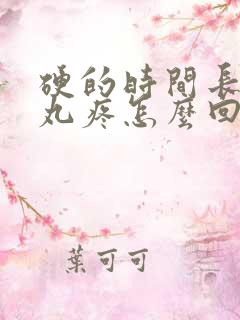 硬的時間長
丸疼怎麼回
葉可可